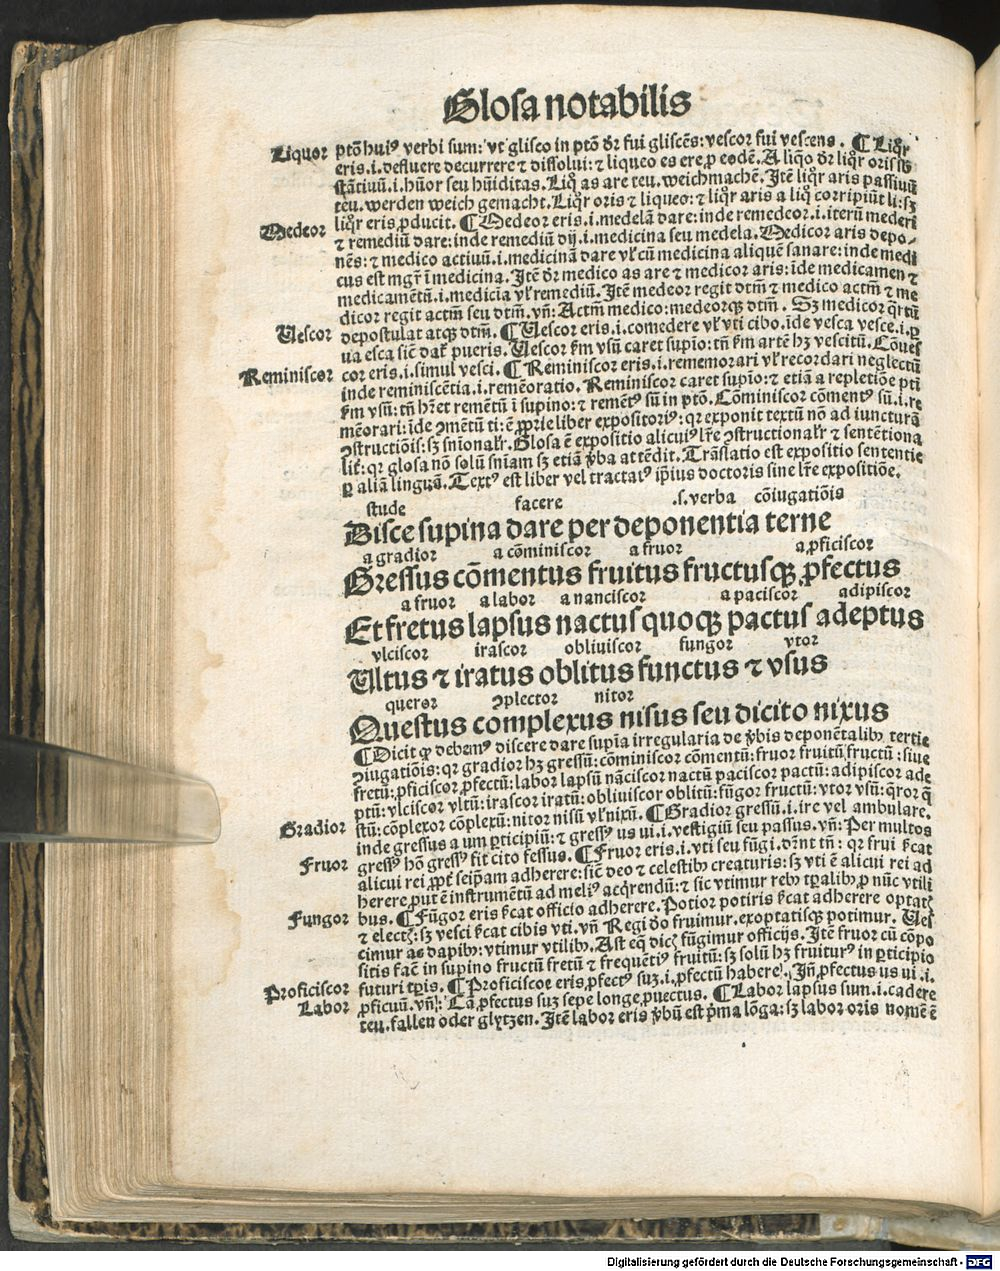 Glosa notabilis
Liquor ptō huiꝰ verbi sum: vt glisco in ptō dr fui gliscēs: vescor fui vescens. ¶ Liqr
eris .i. defluere decurrere ⁊ dissolui: ⁊ liqueo es ere ꝓ eodē. A liqo dr liqr oris sb
stātiuū .i. hūor seu hūiditas. Liq as are teu. weichmachē. Itē liqr aris passiuū
teu. werden weich gemacht. Liqr oris ⁊ liqueo: ⁊ liqr aris a liq corripiūt li: sꝫ
Medeor liqr eris ꝓducit. ¶ Medeor eris .i. medelā dare: inde remedeor .i. iterū mederi
⁊ remediū dare: inde remediū dij .i. medicina seu medela. Medicor aris depo-
nēs: ⁊ medico actiuū .i. medicinā dare vl cū medicina aliquē sanare: inde medi
cus est mgr ī medicina. Itē dr medico as are ⁊ medicor aris: īde medicamen ⁊
medicamētū .i. medicīa vl remediū. Itē medeor regit dtm̄ ⁊ medico actm̄ ⁊ me
dicor regit actm̄ seu dtm̄. vn̄: Actm̄ medico: medeorqꝫ dtm̄. Sꝫ medicor qrtū
Vescor depostulat atqꝫ dtm̄. ¶ Vescor eris .i. comedere vl vti cibo. īde vesca vesce .i. ꝑ
ua esca sic̄ dat pueris. Vescor ẜm vsū caret supīo: tn̄ ẜm artē hꝫ vescitū. Cōues
Reminiscor cor eris .i. simul vesci. ¶ Reminiscor eris .i. rememorari vl recordari neglectū
inde reminiscētia .i. remēoratio. Reminiscor caret supīo: ⁊ etiā a repletiōe pti
ẜm vsū: tn̄ hret remētū ī supino: ⁊ remētꝰ sū in ptō. Cōminiscor cōmentꝰ sū .i. re
mēorari: īde ꝯmētū ti: ē ꝓprie liber expositoriꝰ: qr exponit textū nō ad iuncturā
ꝯstructiōis: sꝫ snīonalr. Glosa ē expositio alicuiꝰ lre ꝯstructionalr ⁊ sentētiona
lit: qr glosa nō solū snīam sꝫ etiā ꝟba attēdit. Trāslatio est expositio sententie
ꝑ aliā linguā. Textꝰ est liber vel tractatꝰ ip̄ius doctoris sine lre expositiōe.
stude facere .s. verba cōiugatiōis
Disce supina dare per deponentia terne
a gradior a cōminiscor a fruor a ꝓficiscor
Gressus cōmentus fruitus fructusqꝫ ꝓfectus
a fruor a labor a nanciscor a paciscor adipiscor
Et fretus lapsus nactus quoqꝫ pactus adeptus
vlciscor irascor obliuiscor fungor vtor
Ultus ⁊ iratus oblitus functus ⁊ vsus
queror ꝯplector nitor
Questus complexus nisus seu dicito nixus
¶ Dicit ꝙ debemꝰ discere dare supīa irregularia de ꝟbis deponētalibꝫ tertie
ꝯiugatiōis: qr gradior hꝫ gressū: cōminiscor cōmentū: fruor fruitū fructū: siue
fretū: ꝓficiscor ꝓfectū: labor lapsū nāciscor nactū paciscor pactū: adipiscor ade
ptū: vlciscor vltū: irascor iratū: obliuiscor oblitū: fūgor fructū: vtor vsū: qror q
stū: cōplexor cōplexū: nitor nisū vl nixū. ¶ Gradior gressū .i. ire vel ambulare.
Gradior inde gressus a um ꝑticipiū: ⁊ gressꝰ us ui .i. vestigiū seu passus. vn̄: Per multos
gressꝰ hō gressꝰ fit cito fessus. ¶ Fruor eris .i. vti seu fūgi. drnt tn̄: qr frui ẜcat
Fruor alicui rei ꝓpt seip̄am adherere: sic̄ deo ⁊ celestibꝫ creaturis: sꝫ vti ē alicui rei ad
herere ꝓut ē instrumētū ad meliꝰ acqrendū: ⁊ sic vtimur rebꝫ tꝑalibꝫ ꝓ nūc vtili
Fungor bus. ¶ Fūgor eris ẜcat officio adherere. Potior potiris ẜcat adherere optat
⁊ elect: sꝫ vesci ẜcat cibis vti. vn̄ Regi do fruimur. exoptatisqꝫ potimur. Ves
cimur ac dapibꝫ: vtimur vtilibꝫ. Ast eq dic fūgimur officijs. Itē fruor cū cōpo
sitis facē in supino fructū fretū ⁊ frequētiꝰ fruitū: sꝫ solū hꝫ fruiturꝰ in ꝑticipio
Proficiscor futuri tꝑis. ¶ Proficiscor eris ꝓfectꝰ suꝫ .i. ꝓfectū habere. In̄ ꝓfectus us ui .i.
Labor ꝓficuū. vn̄: Cā ꝓfectus suꝫ sepe longe ꝓuectus. ¶ Labor lapsus sum .i. cadere
teu. fallen oder glytzen. Itē labor eris ꝟbū est pma lōga: sꝫ labor oris nomē ē
Digitalisierung gefördert durch die Deutsche Forschungsgemeinschaft - DFG